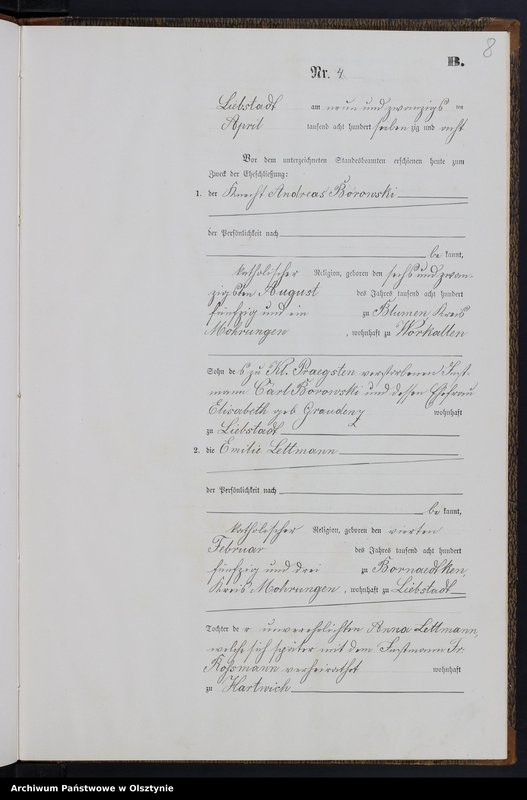 8
B.
Nr. 4
Liebstadt am neun und zwanzigs ten
April tausend acht hundert sieben zig und acht
Vor dem unterzeichneten Standesbeamten erschienen heute zum
Zweck der Eheschließung:
1. der Knecht Andreas Borowski
der Persönlichkeit nach
be kannt,
katholischer Religion, geboren den sechs und zwan-
zigsten August des Jahres tausend acht hundert
fünfzig und ein zu Blumen Kreis
Mohrungen, wohnhaft zu Workallen
Sohn des zu Kl. Praegsten verstorbenen Inst-
mann Carl Borowski und dessen Ehefrau
Elisabeth geb Graudenz wohnhaft
zu Liebstadt
2. die Emilie Lettmann
der Persönlichkeit nach
be kannt,
katholischer Religion, geboren den vierten
Februar des Jahres tausend acht hundert
fünfzig und drei zu
Kreis Mohrungen, wohnhaft zu Liebstadt
Tochter der unverehelichten Anna Lettmann,
welche sich später mit dem Instmann Fr.
Kossmann verheirathet wohnhaft
zu Hartwich
Archiwum Państwowe w Olsztynie